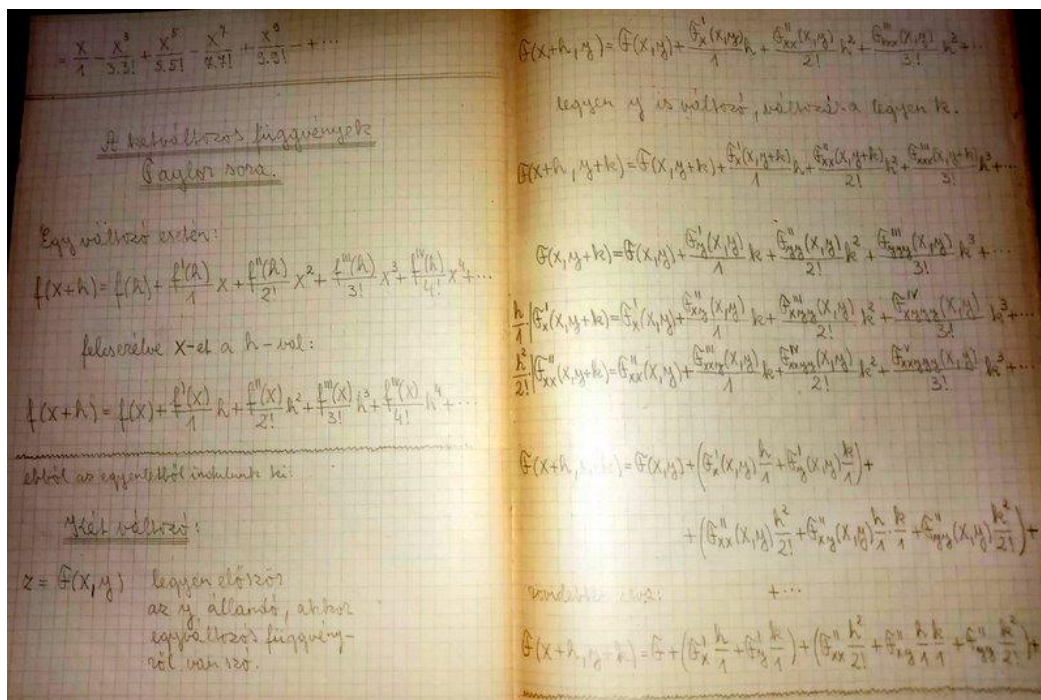 = x/1 - x³/3.3! + x⁵/5.5! - x⁷/7.7! + x⁹/9.9! - + ···
A kétváltozós függvények
Taylor sora.
Egy változó esetén:
f(x+h) = f(h) + f'(h)/1 x + f''(h)/2! x² + f'''(h)/3! x³ + f^IV(h)/4! x⁴ + ···
felcserélve x-et a h-val:
f(x+h) = f(x) + f'(x)/1 h + f''(x)/2! h² + f'''(x)/3! h³ + f^IV(x)/4! h⁴ + ···
ebből az egyenletből indulunk ki:
Két változó:
z = F(x,y) legyen először
az y állandó, akkor
egyváltozós függvény-
ről van szó.
F(x+h,y) = F(x,y) + F'x(x,y)/1 h + F''xx(x,y)/2! h² + F'''xxx(x,y)/3! h³ + ···
legyen y is változó, változása legyen k.
F(x+h,y+k) = F(x,y+k) + F'x(x,y+k)/1 h + F''xx(x,y+k)/2! h² + F'''xxx(x,y+k)/3! h³ + ···
F(x,y+k) = F(x,y) + F'y(x,y)/1 k + F''yy(x,y)/2! k² + F'''yyy(x,y)/3! k³ + ···
h/1 | F'x(x,y+k) = F'x(x,y) + F''xy(x,y)/1 k + F'''xyy(x,y)/2! k² + F^IV xyyy(x,y)/3! k³ + ···
h²/2! | F''xx(x,y+k) = F''xx(x,y) + F'''xxy(x,y)/1 k + F^IV xxyy(x,y)/2! k² + F^V xxyyy(x,y)/3! k³ + ···
F(x+h,y+k) = F(x,y) + (F'x(x,y) h/1 + F'y(x,y) k/1) +
+ (F''xx(x,y) h²/2! + F''xy(x,y) h/1 · k/1 + F''yy(x,y) k²/2!) +
+ ···
F(x+h,y+k) = F + (F'x h/1 + F'y k/1) + (F''xx h²/2! + F''xy h/1 k/1 + F''yy k²/2!) +